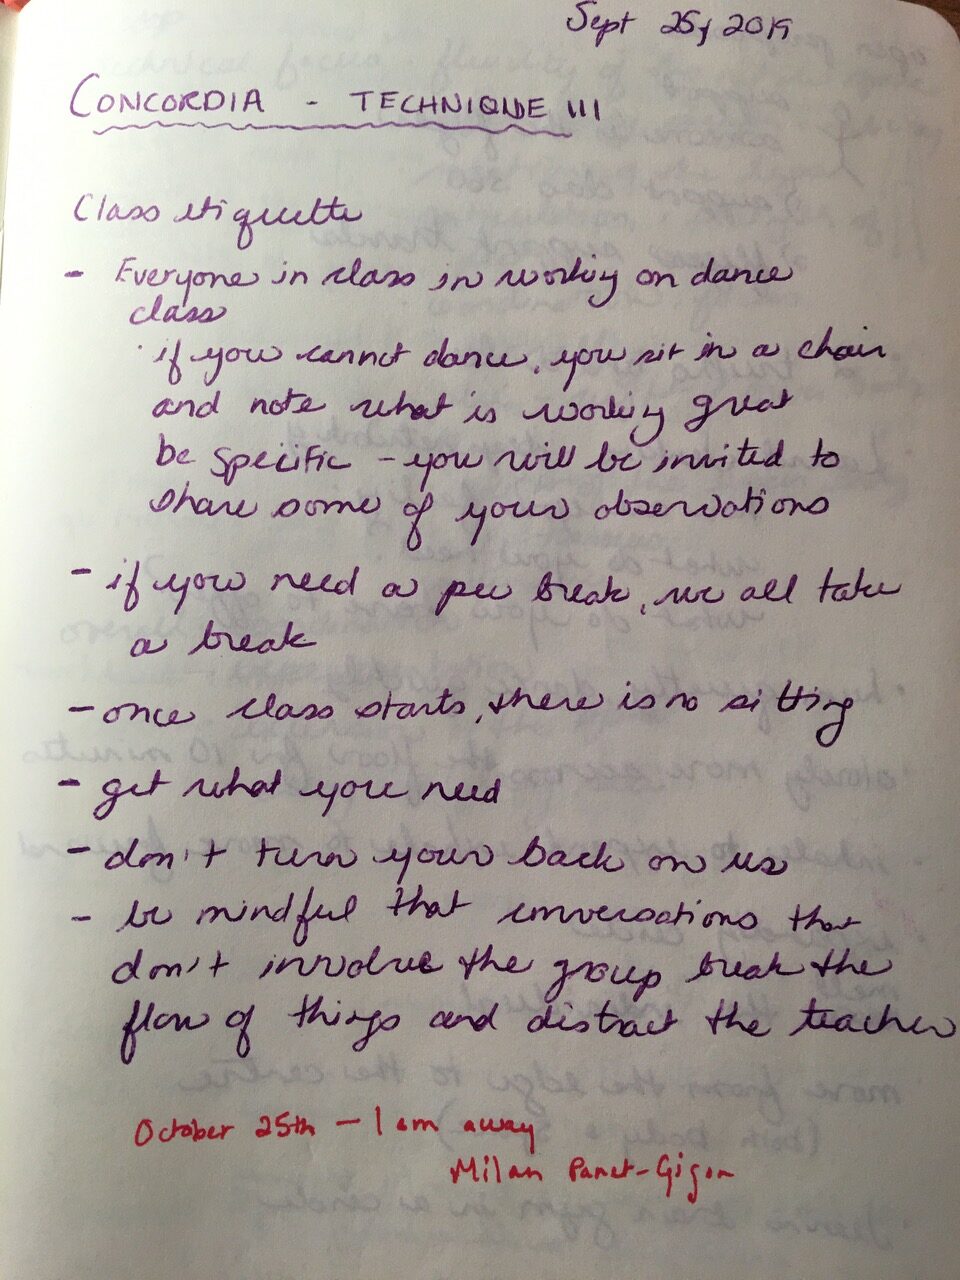 Sept 25, 2019
CONCORDIA - TECHNIQUE III
Class etiquette
- Everyone in class in working on dance
class
· if you cannot dance, you sit in a chair
and note what is working great
be specific - you will be invited to
share some of your observations
- if you need a pee break, we all take
a break
- once class starts, there is no sitting
- get what you need
- don't turn your back on us
- be mindful that conversations that
don't involve the group break the
flow of things and distract the teacher
October 25th - I am away
Milan Panet-Gigon